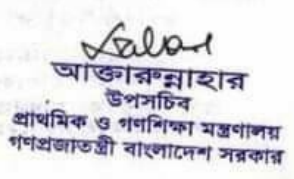 আক্তারুন্নাহার
উপসচিব
প্রাথমিক ও গণশিক্ষা মন্ত্রণালয়
গণপ্রজাতন্ত্রী বাংলাদেশ সরকার